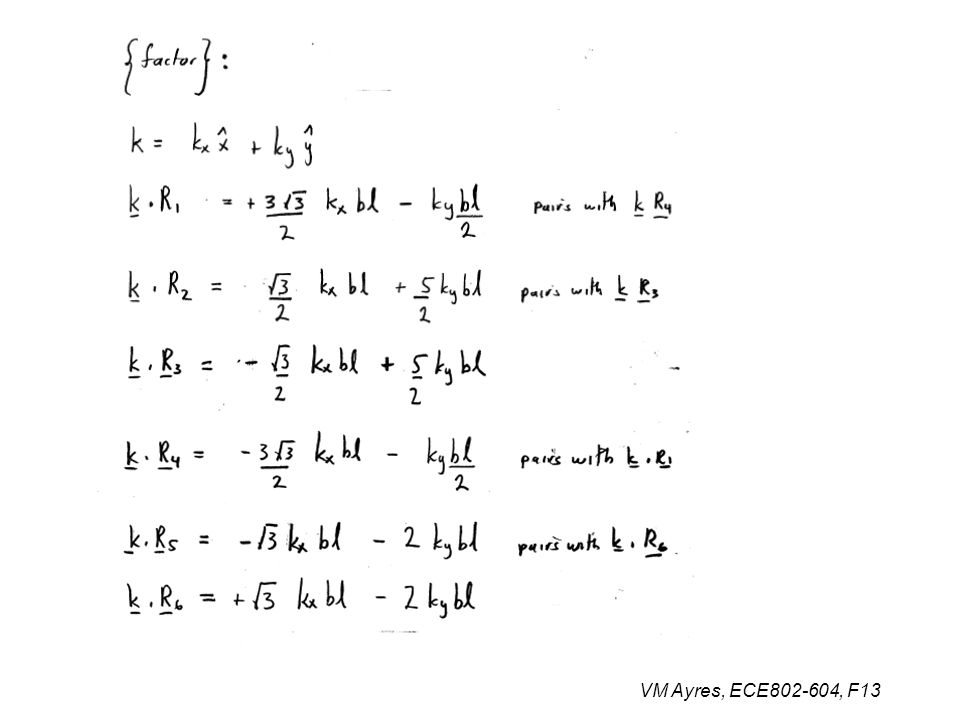 {factor}:
k = kx x̂ + ky ŷ
k · R1 = + 3√3/2 kx bl - ky bl/2 pairs with k R4
k · R2 = √3/2 kx bl + 5/2 ky bl pairs with k R3
k · R3 = - √3/2 kx bl + 5/2 ky bl
k · R4 = - 3√3/2 kx bl - ky bl/2 pairs with k · R1
k · R5 = - √3 kx bl - 2 ky bl pairs with k · R6
k · R6 = + √3 kx bl - 2 ky bl
VM Ayres, ECE802-604, F13